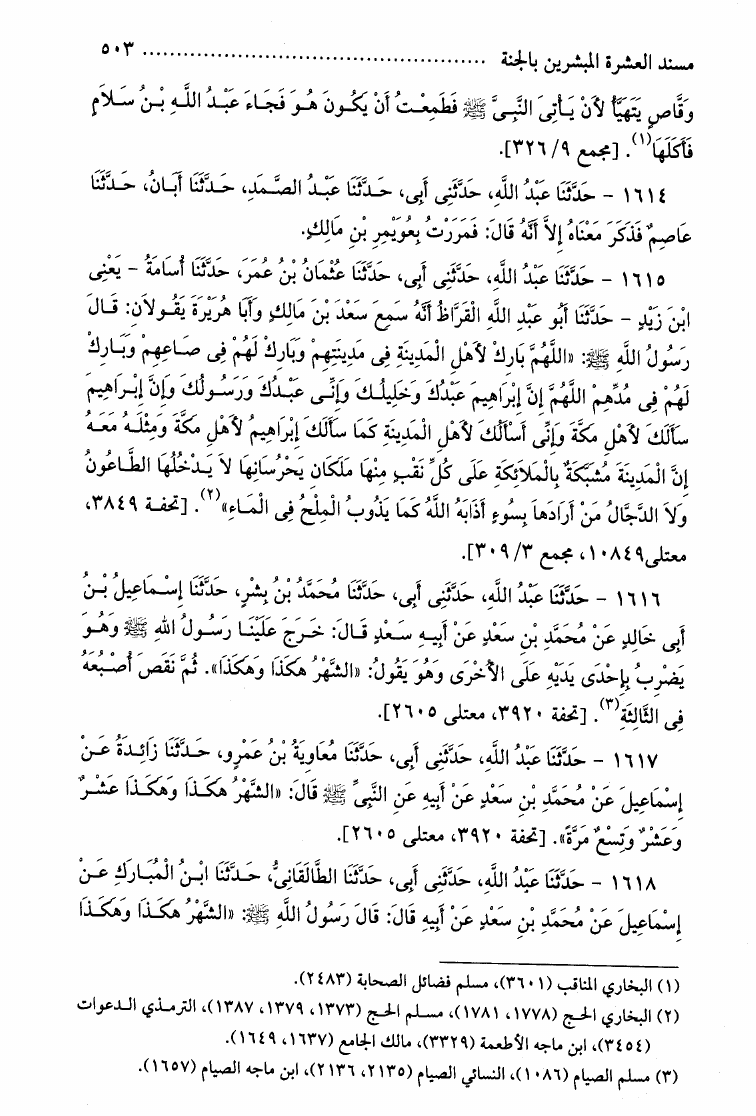 مسند العشرة المبشرين بالجنة .................................................. ٥٠٣
وَقَّاصٍ يَتَهَيَّأُ لأَنْ يَأْتِىَ النَّبِىَّ ﷺ فَطَمِعْتُ أَنْ يَكُونَ هُوَ فَجَاءَ عَبْدُ اللَّهِ بْنُ سَلاَمٍ
فَأَكَلَهَا(١). [مجمع ٩/ ٣٢٦].
١٦١٤ – حَدَّثَنَا عَبْدُ اللَّهِ، حَدَّثَنِى أَبِى، حَدَّثَنَا عَبْدُ الصَّمَدِ، حَدَّثَنَا أَبَانُ، حَدَّثَنَا
عَاصِمٌ فَذَكَرَ مَعْنَاهُ إِلاَّ أَنَّهُ قَالَ: فَمَرَرْتُ بِعُوَيْمِرِ بْنِ مَالِكٍ.
١٦١٥ – حَدَّثَنَا عَبْدُ اللَّهِ، حَدَّثَنِى أَبِى، حَدَّثَنَا عُثْمَانُ بْنُ عُمَرَ، حَدَّثَنَا أُسَامَةُ – يَعْنِى
ابْنَ زَيْدٍ – حَدَّثَنَا أَبُو عَبْدِ اللَّهِ الْقَرَّاظُ أَنَّهُ سَمِعَ سَعْدَ بْنَ مَالِكٍ وَأَبَا هُرَيْرَةَ يَقُولاَنِ: قَالَ
رَسُولُ اللَّهِ ﷺ: «اللَّهُمَّ بَارِكْ لأَهْلِ الْمَدِينَةِ فِى مَدِينَتِهِمْ وَبَارِكْ لَهُمْ فِى صَاعِهِمْ وَبَارِكْ
لَهُمْ فِى مُدِّهِمْ اللَّهُمَّ إِنَّ إِبْرَاهِيمَ عَبْدُكَ وَخَلِيلُكَ وَإِنِّى عَبْدُكَ وَرَسُولُكَ وَإِنَّ إِبْرَاهِيمَ
سَأَلَكَ لأَهْلِ مَكَّةَ وَإِنِّى أَسْأَلُكَ لأَهْلِ الْمَدِينَةِ كَمَا سَأَلَكَ إِبْرَاهِيمُ لأَهْلِ مَكَّةَ وَمِثْلَهُ مَعَهُ
إِنَّ الْمَدِينَةَ مُشَبَّكَةٌ بِالْمَلاَئِكَةِ عَلَى كُلِّ نَقْبٍ مِنْهَا مَلَكَانِ يَحْرُسَانِهَا لاَ يَدْخُلُهَا الطَّاعُونُ
وَلاَ الدَّجَّالُ مَنْ أَرَادَهَا بِسُوءٍ أَذَابَهُ اللَّهُ كَمَا يَذُوبُ الْمِلْحُ فِى الْمَاءِ»(٢). [تحفة ٣٨٤٩،
معتلى١٠٨٤٩، مجمع ٣/ ٣٠٩].
١٦١٦ – حَدَّثَنَا عَبْدُ اللَّهِ، حَدَّثَنِى أَبِى، حَدَّثَنَا مُحَمَّدُ بْنُ بِشْرٍ، حَدَّثَنَا إِسْمَاعِيلُ بْنُ
أَبِى خَالِدٍ عَنْ مُحَمَّدِ بْنِ سَعْدٍ عَنْ أَبِيهِ سَعْدٍ قَالَ: خَرَجَ عَلَيْنَا رَسُولُ اللهِ ﷺ وَهُوَ
يَضْرِبُ بِإِحْدَى يَدَيْهِ عَلَى الأُخْرَى وَهُوَ يَقُولُ: «الشَّهْرُ هَكَذَا وَهَكَذَا». ثُمَّ نَقَصَ أُصْبُعَهُ
فِى الثَّالِثَةِ(٣). [تحفة ٣٩٢٠، معتلى ٢٦٠٥].
١٦١٧ – حَدَّثَنَا عَبْدُ اللَّهِ، حَدَّثَنِى أَبِى، حَدَّثَنَا مُعَاوِيَةُ بْنُ عَمْرٍو، حَدَّثَنَا زَائِدَةُ عَنْ
إِسْمَاعِيلَ عَنْ مُحَمَّدِ بْنِ سَعْدٍ عَنْ أَبِيهِ عَنِ النَّبِىِّ ﷺ قَالَ: «الشَّهْرُ هَكَذَا وَهَكَذَا عَشْرٌ
وَعَشْرٌ وَتِسْعٌ مَرَّةً». [تحفة ٣٩٢٠، معتلى ٢٦٠٥].
١٦١٨ – حَدَّثَنَا عَبْدُ اللَّهِ، حَدَّثَنِى أَبِى، حَدَّثَنَا الطَّالَقَانِىُّ، حَدَّثَنَا ابْنُ الْمُبَارَكِ عَنْ
إِسْمَاعِيلَ عَنْ مُحَمَّدِ بْنِ سَعْدٍ عَنْ أَبِيهِ قَالَ: قَالَ رَسُولُ اللَّهِ ﷺ: «الشَّهْرُ هَكَذَا وَهَكَذَا
(١) البخاري المناقب (٣٦٠١)، مسلم فضائل الصحابة (٢٤٨٣).
(٢) البخاري الحج (١٧٧٨، ١٧٨١)، مسلم الحج (١٣٧٣، ١٣٧٩، ١٣٨٧)، الترمذي الدعوات
(٣٤٥٤)، ابن ماجه الأطعمة (٣٣٢٩)، مالك الجامع (١٦٣٧، ١٦٤٩).
(٣) مسلم الصيام (١٠٨٦)، النسائي الصيام (٢١٣٥، ٢١٣٦)، ابن ماجه الصيام (١٦٥٧).